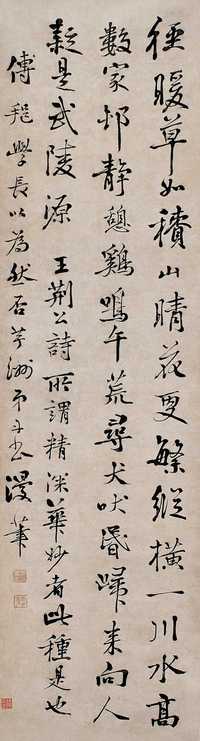 徑暖草如積山晴花更繁縱橫一川水高
數家邨靜憩鷄鳴午荒尋犬吠昏歸來向人
疑是武陵源 王荊公詩所謂精深華妙者此種是也
傅 學長以為然否 洲弟 漫筆